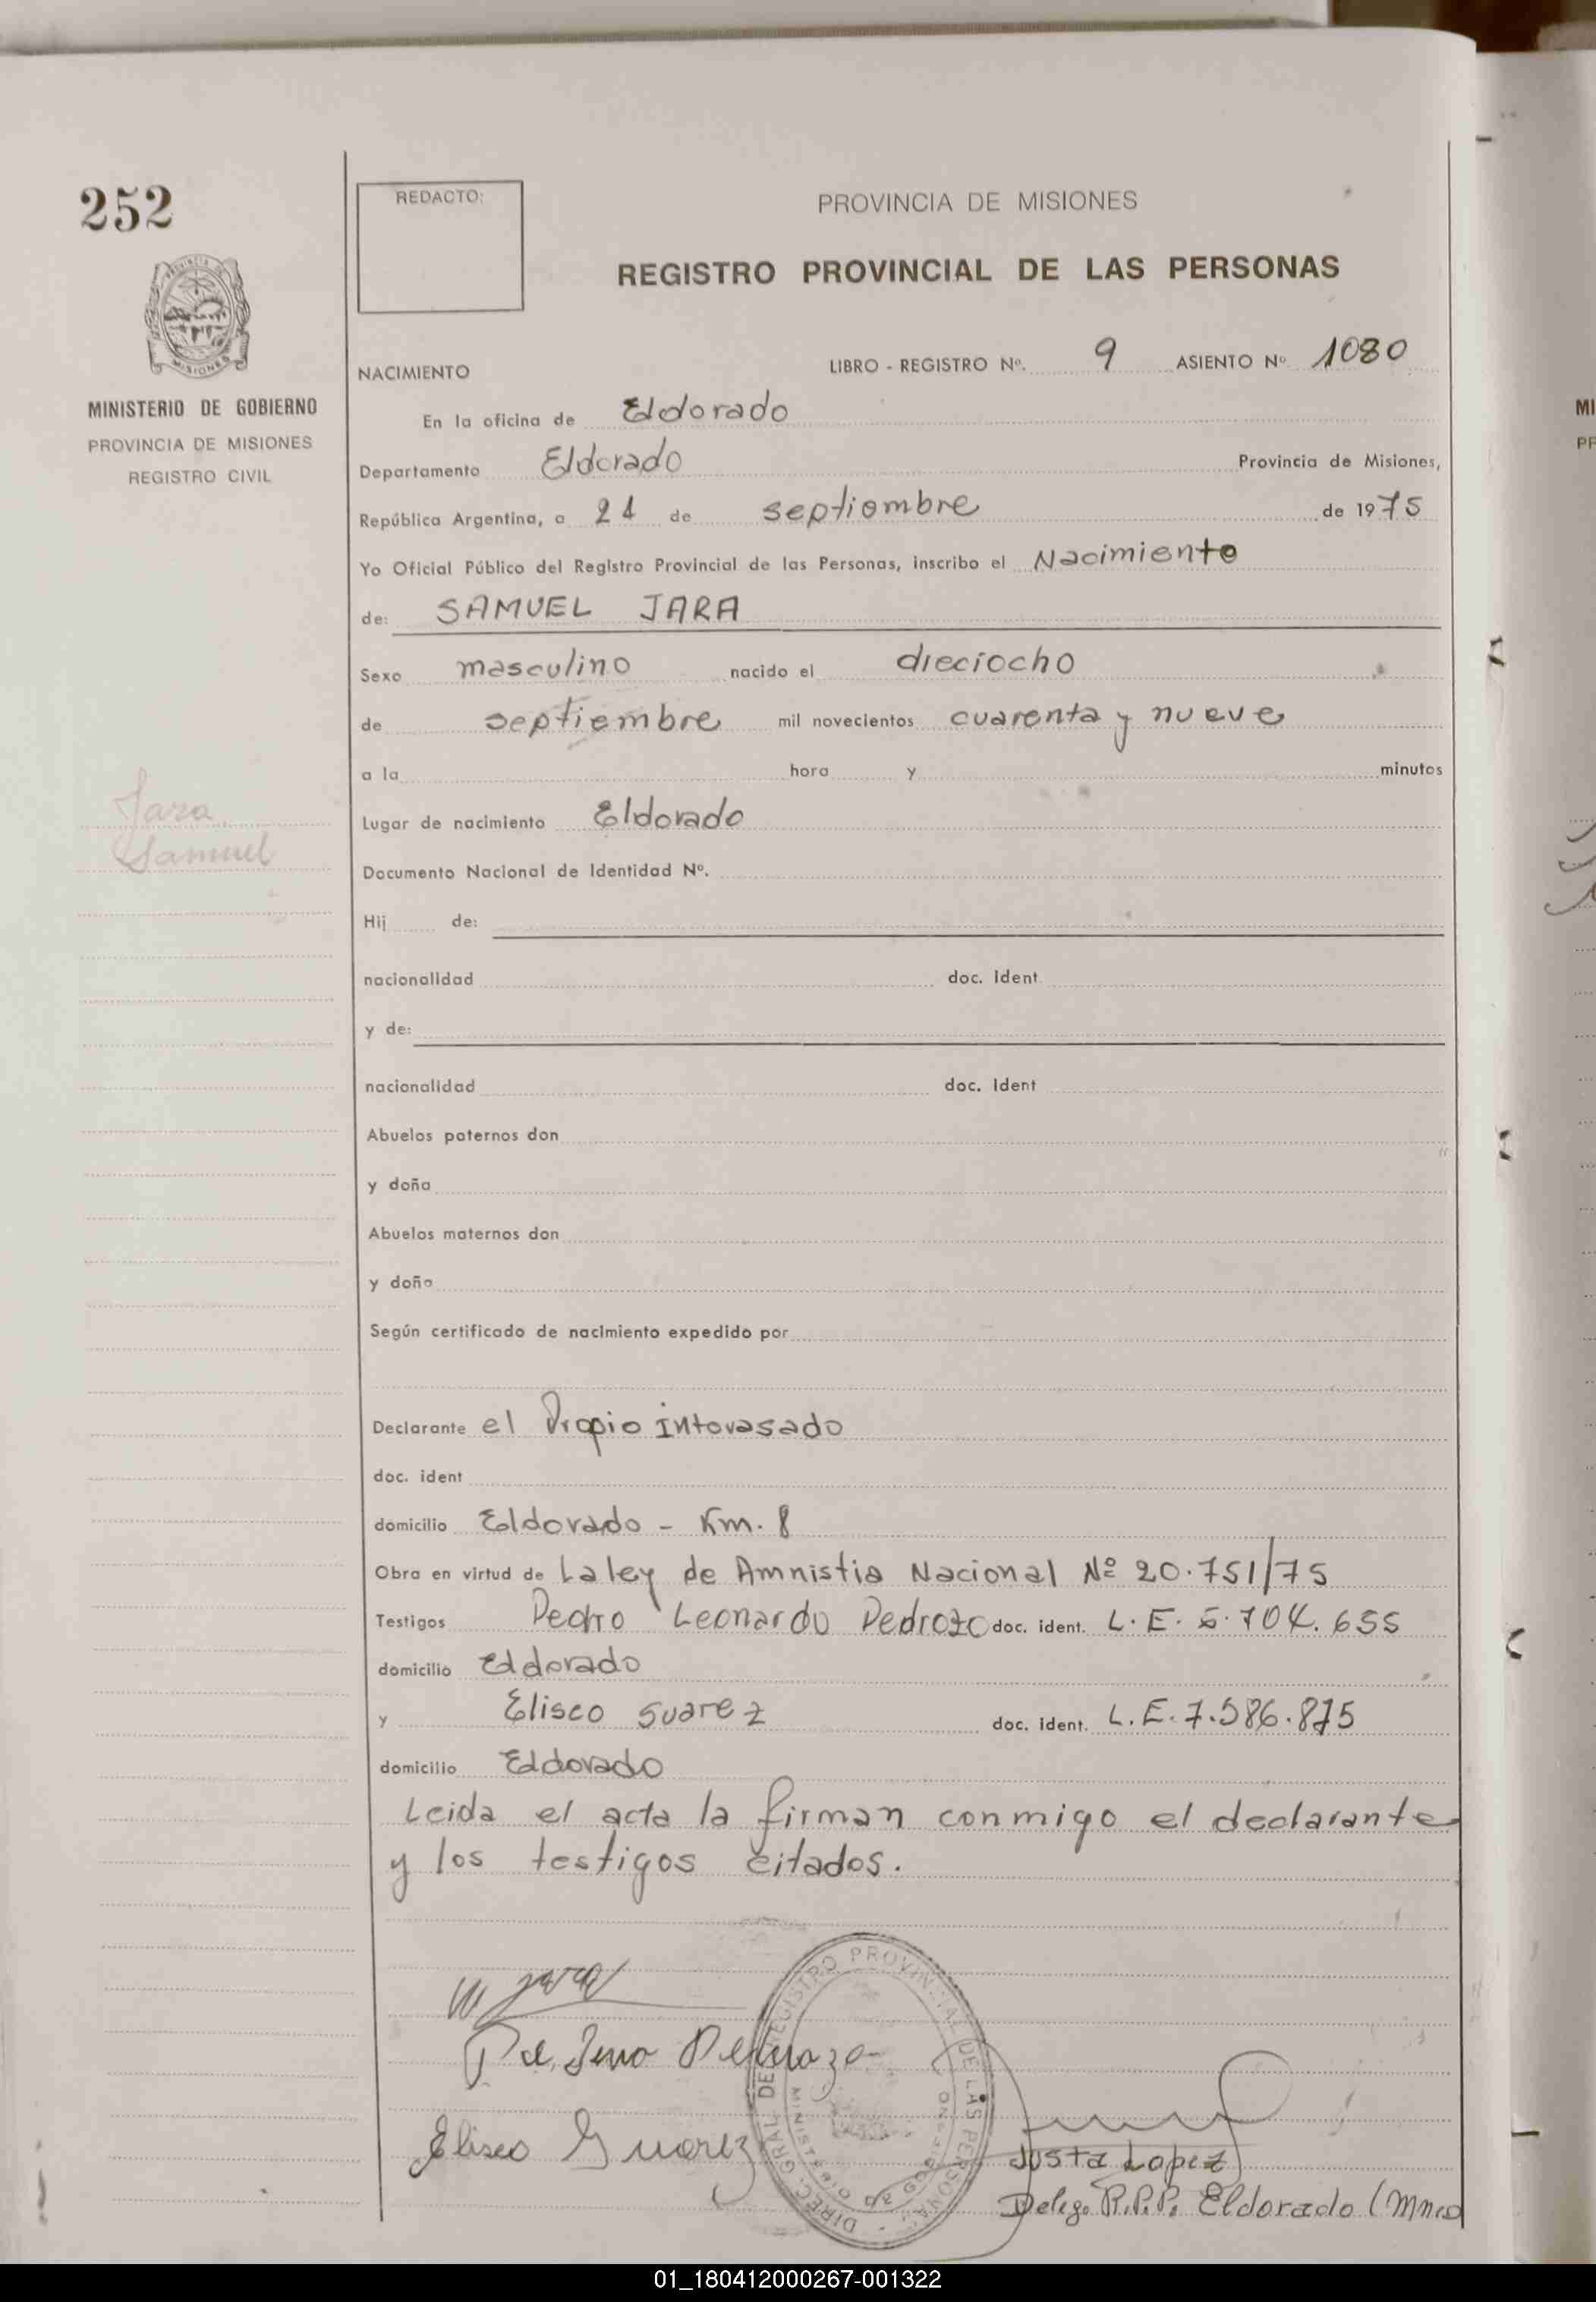 252
REDACTO:
PROVINCIA DE MISIONES
REGISTRO PROVINCIAL DE LAS PERSONAS
MISIONES
MINISTERIO DE GOBIERNO
PROVINCIA DE MISIONES
REGISTRO CIVIL
NACIMIENTO LIBRO - REGISTRO Nº. 9 ASIENTO Nº 1080
En la oficina de Eldorado
Departamento Eldorado Provincia de Misiones,
República Argentina, a 21 de septiombre de 1975
Yo Oficial Público del Registro Provincial de las Personas, inscribo el Nacimiento
de: SAMUEL JARA
Sexo masculino nacido el dieciocho
de septiembre mil novecientos cuarenta y nueve
a la hora y minutos
Jara
Samuel
Lugar de nacimiento Eldorado
Documento Nacional de Identidad Nº.
Hij de:
nacionalidad doc. ident
y de:
nacionalidad doc. ident
Abuelos paternos don
y doña
Abuelos maternos don
y doña
Según certificado de nacimiento expedido por
Declarante el Propio Intovasado
doc. ident
domicilio Eldorado - Km. 8
Obra en virtud de La ley de Amnistia Nacional Nº 20.751/75
Testigos Pedro Leonardo Pedrozo doc. ident. L.E. 5.704.655
domicilio Eldorado
y Eliseo Suarez doc. ident. L.E. 7.586.875
domicilio Eldorado
Leida el acta la firman conmigo el declarante
y los testigos citados.
Jara
Eliseo Suarez
DIREC. GRAL. DE REGISTRO PROVINCIAL DE LAS PERSONAS
Justa Lopez
Delega. R.P.P. Eldorado (Mnes)
01_180412000267-001322